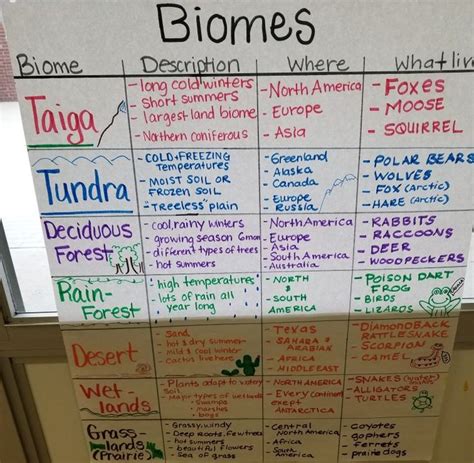 Biomes
Biome Description Where What liv
Taiga
- long cold winters
- Short summers
- largest land biome
- Northern coniferous
- North America
- Europe
- Asia
- Foxes
- MOOSE
- SQUIRREL
Tundra
- COLD + FREEZING
temperatures
- MOIST SOIL OR
FROZEN SOIL
- "Treeless" plain
- Greenland
- Alaska
- Canada
- Europe
Russia
- POLAR BEARS
- WOLVES
- FOX (Arctic)
- HARE (Arctic)
Deciduous
Forest
- cool, rainy winters
- growing season 6mon
- different types of trees
- hot summers
- North America
- Europe
- Asia
- South America
- Australia
- RABBITS
- RACCOONS
- DEER
- WOODPECKERS
Rain-
Forest
- high temperatures
- lots of rain all
year long
- NORTH
&
SOUTH
AMERICA
- POISON DART
FROG
- BIRDS
- LIZARDS
Desert
- Sand
- hot & dry summer
- Mild & cool winter
- Cactus live here
- Texas
- SAHARA &
ARABIAN
- AFRICA
- MIDDLE EAST
- DIAMONDBACK
RATTLESNAKE
- SCORPION
- CAMEL
Wet-
lands
- Plants adapt to watery
soil
- Major types of wetlands
- Swamps
- marshes
- bogs
- NORTH AMERICA
- Every continent
exept
ANTARCTICA
- SNAKES
- ALLIGATORS
- TURTLES
Grass-
lands
(Prairie)
- Grassy, windy
- Deep roots, few trees
- hot summers
- beautiful flowers
- Central
North America
- Africa
- South America
- Coyotes
- gophers
- ferrets
- prairie